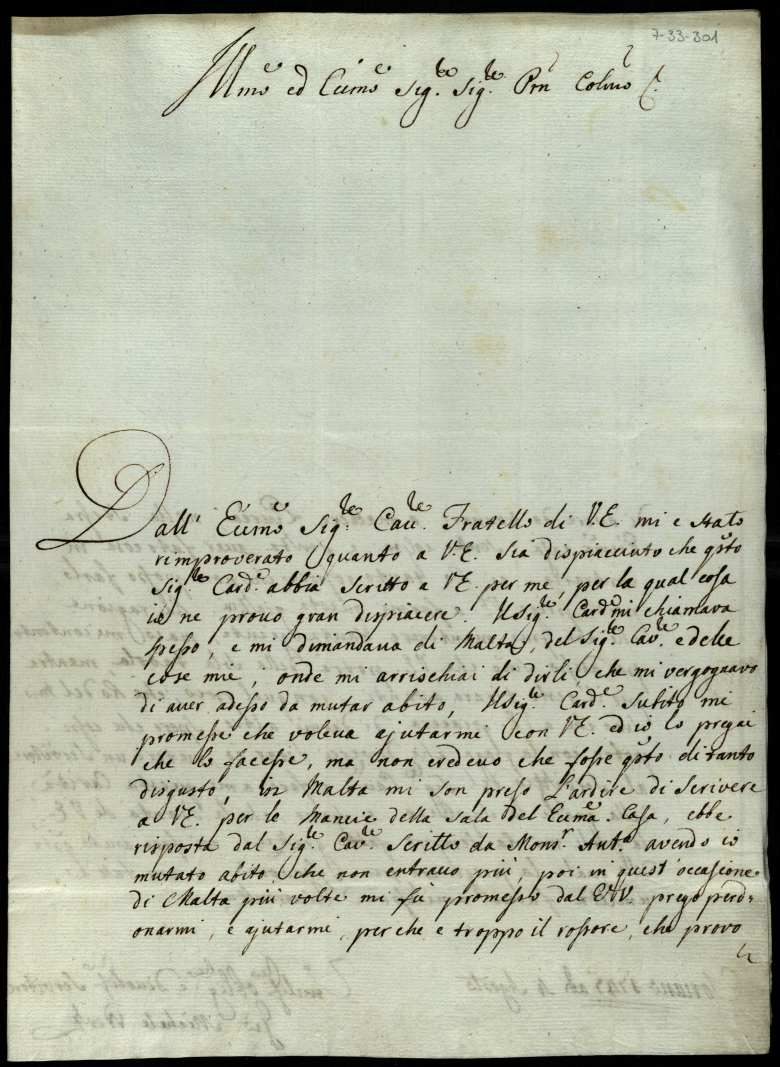 7-33-301
Illmo ed Ecc̃mo Sig.re Sig.re Prñ Colmo
Dall' Ecc̃mo Sig.re Cav.re Fratello di V.E. mi e stato
rimproverato quanto a V.E. sia dispiacciuto che q̃sto
Sig.re Card.e abbia scritto a V.E. per me, per la qual cosa
io ne provo gran dispiacere. Il Sig.re Card.e mi chiamava
spesso, e mi dimandava di Malta, del Sig.re Cav.re e delle
cose mie, onde mi arrischiai di dirli che mi vergognavo
di aver adesso da mutar abito, Il Sig.re Card.e subito mi
promesse che voleva ajutarmi con V.E. ed io lo pregai
che lo facesse, ma non credevo che fosse q̃sto di tanto
disgusto, in Malta mi son preso l'ardire di scrivere
a V.E. per le Mancie della sala del Ecc̃ma Casa, ebbe
risposta dal Sig.re Cav.re scritto da Mons.r Ant.o avendo io
mutato abito che non entravo più, poi in quest'occasione
di Malta più volte mi fù promesso dal prego perd=
onarmi, e ajutarmi, perche e troppo il rossore, che provo